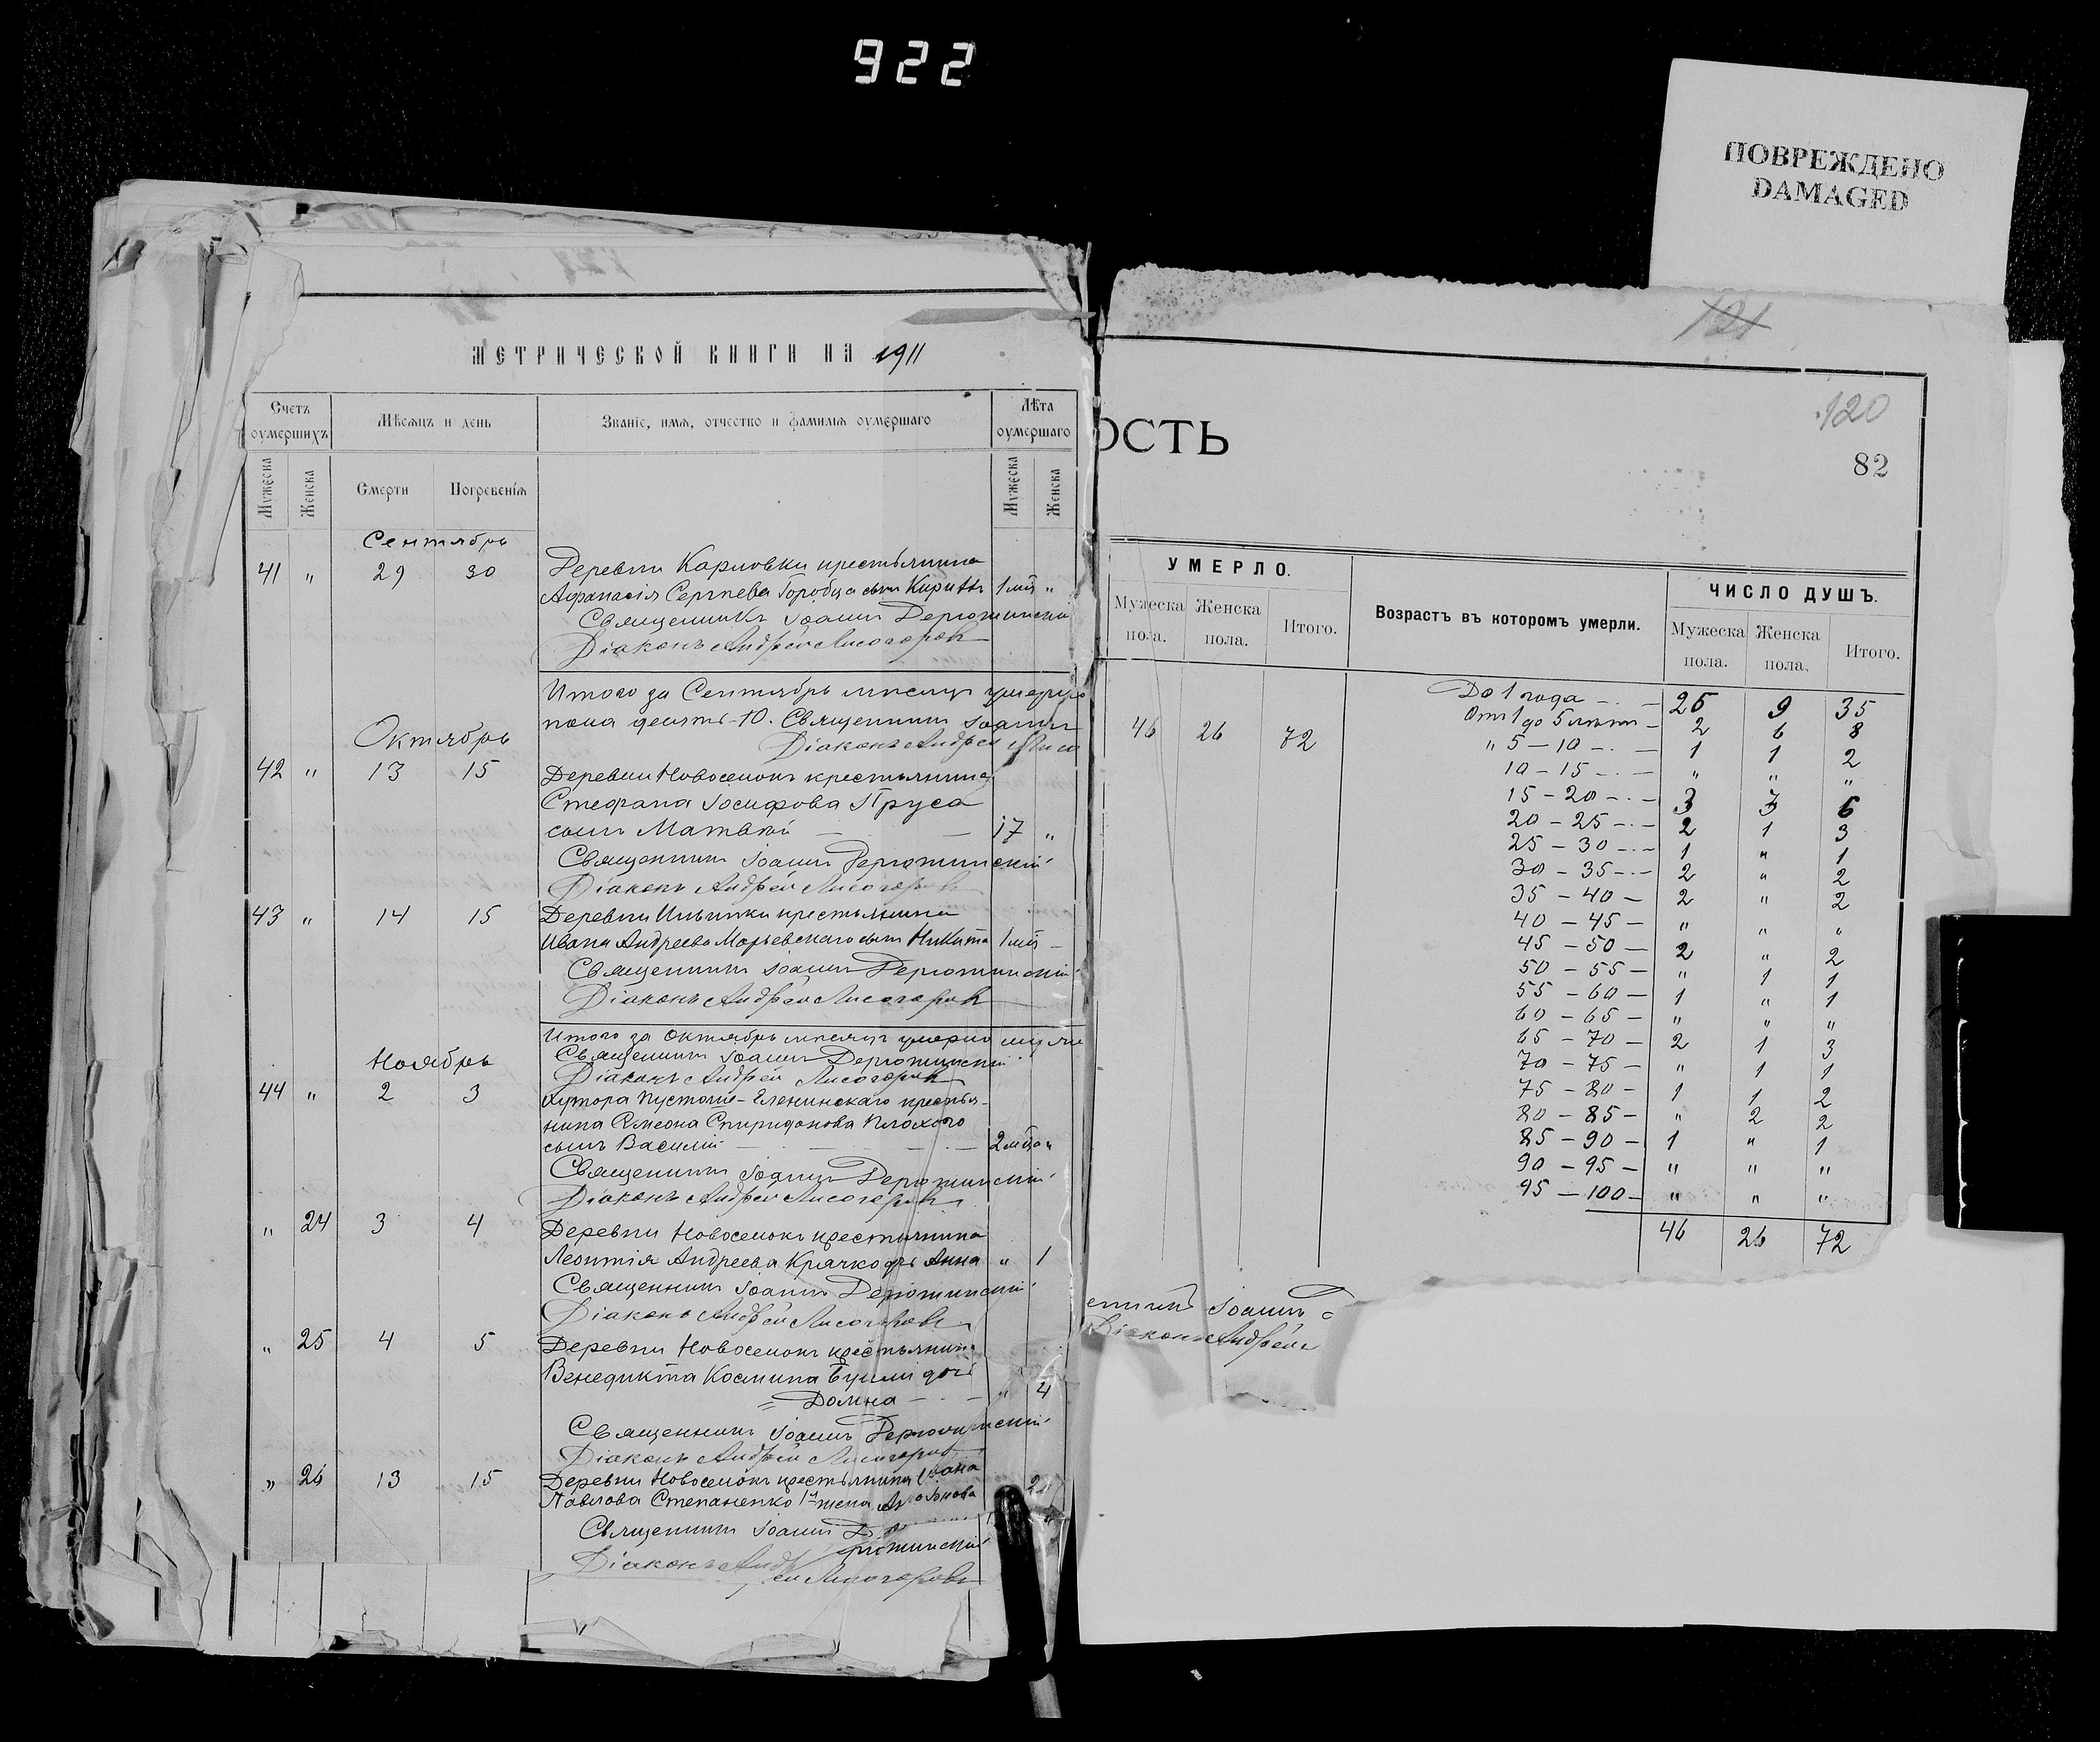 922
ПОВРЕЖДЕНО
DAMAGED
МЕТРИЧЕСКОЙ КНИГИ НА 1911
Счетъ оумершихъ
Мѣсяцъ и день
Званіе, имя, отчество и фамилія оумершаго
Лѣта оумершаго
Мужеска
Женска
Смерти
Погребенія
Мужеска
Женска
Сентябрь
41 " 29 30 Деревни Карловки крестьянина
Афанасія Сергѣева Горобца сынъ Кириллъ 1 мѣс "
Священникъ Іоаннъ Дерюжинскій
Діаконъ Андрей Лисогоровъ
Итого за Сентябрь мѣсяцъ умерло
пола десять - 10. Священникъ Іоаннъ
Октябрь
Діаконъ Андрей
42 " 13 15 Деревни Новоселокъ крестьянина
Стефана Іосифова Пруса
сынъ Матвѣй — — 17 "
Священникъ Іоаннъ Дерюжинскій
Діаконъ Андрей Лисогоровъ
43 " 14 15 Деревни Ильинки крестьянина
Ивана Андреева Марьевскаго сынъ Никита 1 мѣс —
Священникъ Іоаннъ Дерюжинскій
Діаконъ Андрей Лисогоровъ
Итого за Октябрь мѣсяцъ умерло
Священникъ Іоаннъ Дерюжинскій
Ноябрь
Діаконъ Андрей Лисогоровъ
44 " 2 3 Хутора Пустоше-Еленинскаго крестья-
нина Симеона Спиридонова Плохого
сынъ Василій — — 2 мѣс "
Священникъ Іоаннъ Дерюжинскій
Діаконъ Андрей Лисогоровъ
" 24 3 4 Деревни Новоселокъ крестьянина
Леонтія Андреева Крячко дчь Анна " 1
Священникъ Іоаннъ Дерюжинскій
Діаконъ Андрей Лисогоровъ
" 25 4 5 Деревни Новоселокъ крестьянина
Венедикта Космина дочь
Домна — " 4
Священникъ Іоаннъ Дерюжинскій
Діаконъ Андрей Лисогоровъ
" 26 13 15 Деревни Новоселокъ крестьянина Ивана
Павлова Степаненко жена
Священникъ Іоаннъ Дерюжинскій
Діаконъ Андрей Лисогоровъ
121
120
82
ОСТЬ
УМЕРЛО.
Мужеска пола.
Женска пола.
Итого.
Возрастъ въ которомъ умерли.
ЧИСЛО ДУШЪ.
Мужеска пола.
Женска пола.
Итого.
46 26 72
До 1 года — 26 9 35
Отъ 1 до 5 лѣтъ — 2 6 8
" 5 — 10 — 1 1 2
10 — 15 — " " "
15 — 20 — 3 3 6
20 — 25 — 2 1 3
25 — 30 — 1 " 1
30 — 35 — 2 " 2
35 — 40 — 2 " 2
40 — 45 — " " "
45 — 50 — 2 " 2
50 — 55 — " 1 1
55 — 60 — 1 " 1
60 — 65 — " " "
65 — 70 — 2 1 3
70 — 75 — " 1 1
75 — 80 — 1 1 2
80 — 85 — " 2 2
85 — 90 — 1 " 1
90 — 95 — " " "
95 — 100 — " " "
46 26 72
енникъ Іоаннъ
Діаконъ Андрей